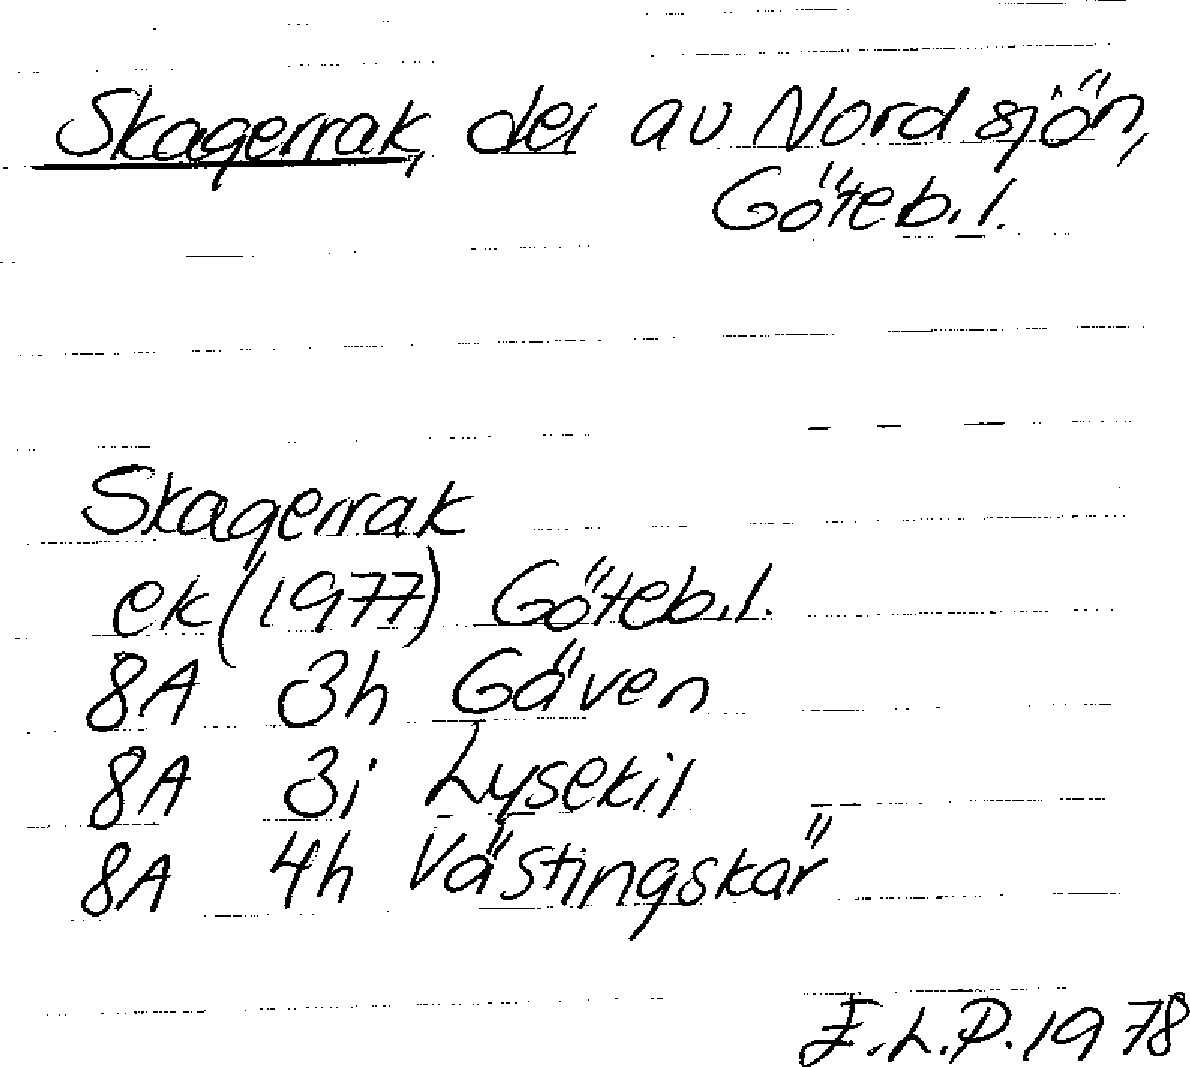 Skagerrak, del av Nordsjön,
Göteb.l.
Skagerrak
ek (1977) Göteb.l.
8A 3h Gäven
8A 3i Lysekil
8A 4h Västingskär
E.L.P. 1978